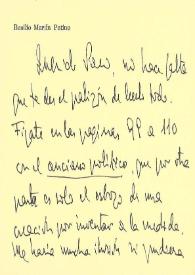 Basilio Martín Patino
Querido Paco, no hace falta
que te des el palizón de leerlo todo.
Fíjate en las páginas 99 a 110
en el anciano político, que por otra
parte es solo el esbozo de una
creación por inventar a la medida.
Me haría mucha ilusión si pudiera